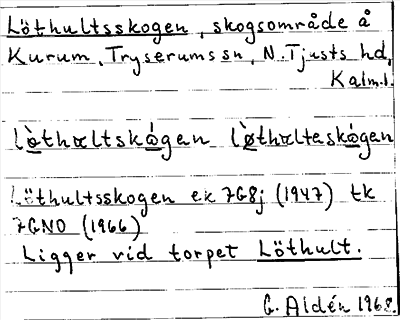 Löthultsskogen, skogsområde å
Kurum, Tryserums sn, N. Tjusts hd,
Kalm.l.
lø̀thæltskágen lø̀thæltaskágen
Löthultsskogen ek 7G8j (1947) tk
7GNO (1966)
Ligger vid torpet Löthult.
G. Aldén 1968.